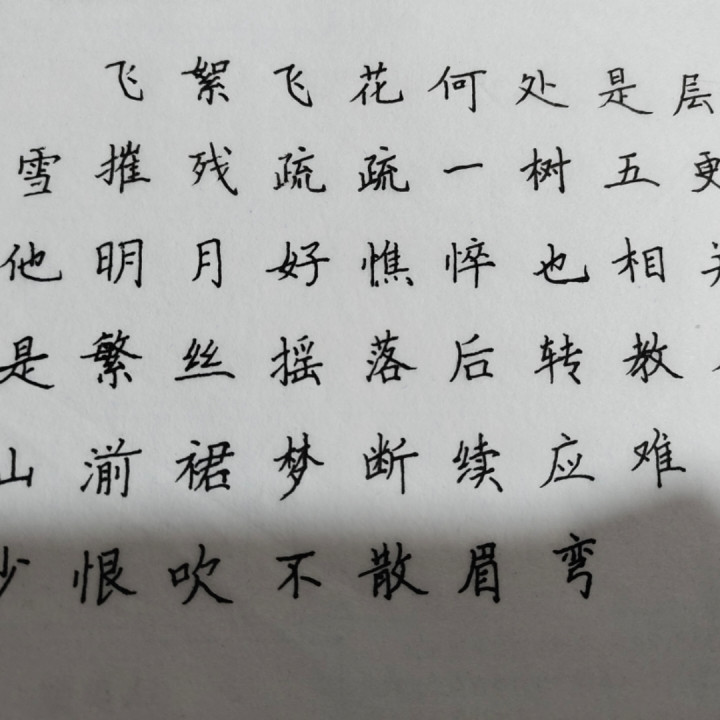 飞絮飞花何处是层
雪摧残疏疏一树五更
他明月好憔悴也相关
是繁丝摇落后转教
山湔裙梦断续应难
恨吹不散眉弯